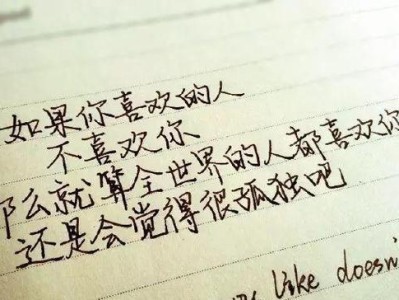 如果你喜欢的人
不喜欢你
那么就算全世界的人都喜欢你
还是会觉得很孤独吧
like doesn